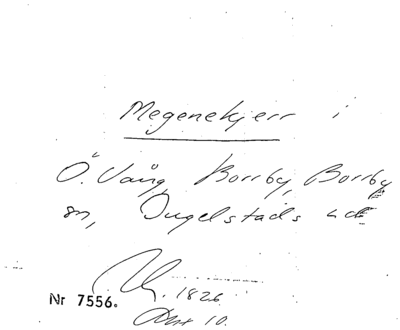 Megenekjerr i
Ö. Vång, Borrby, Borrby
sn, Ingelstads hd
1826
Nr 7556.
10.